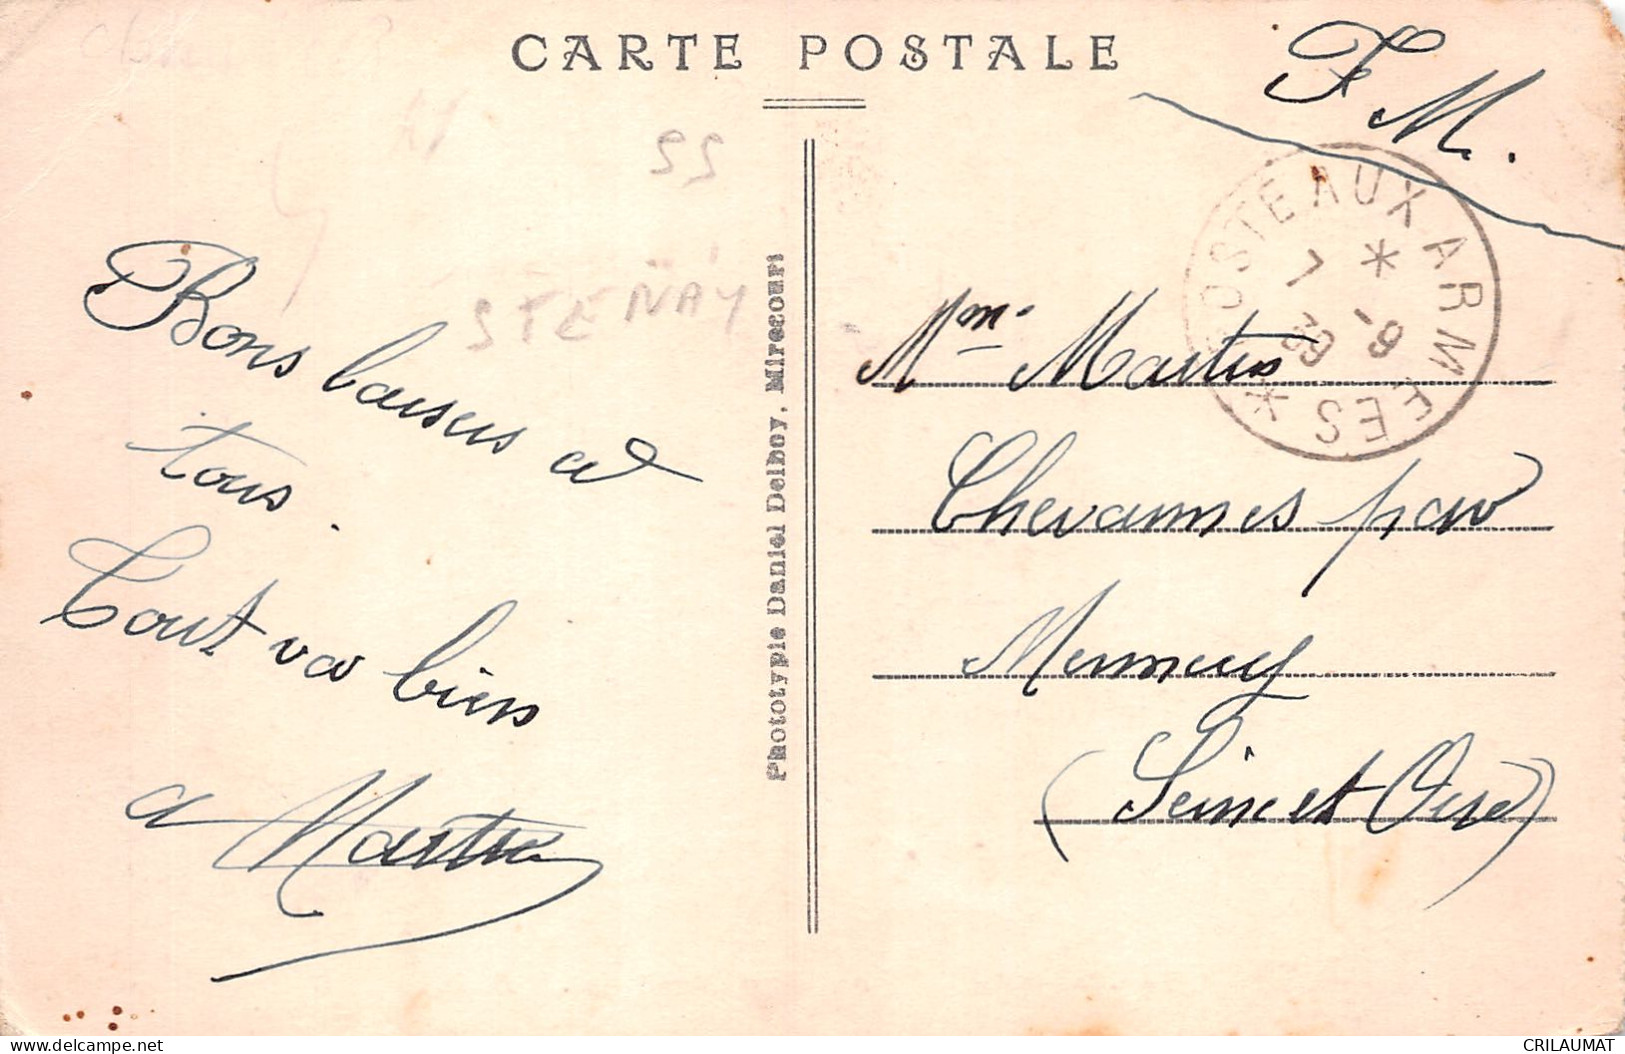 CARTE POSTALE
F.M.
55
STENAY
POSTE AUX ARMEES
*
7 -9
39
*
Bons baisers a
tous.
Tout va bien
a
Phototypie Daniel Delboy, Mirecourt
Mme Martin
Chevannes par
Mennecy
(Seine et Oise)
delcampe.net
CRILAUMAT